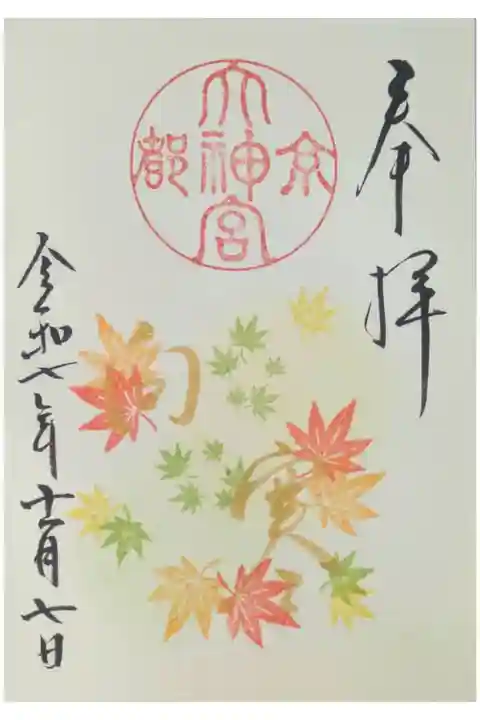 奉拝
京都
大神宮
令和七年十一月七日